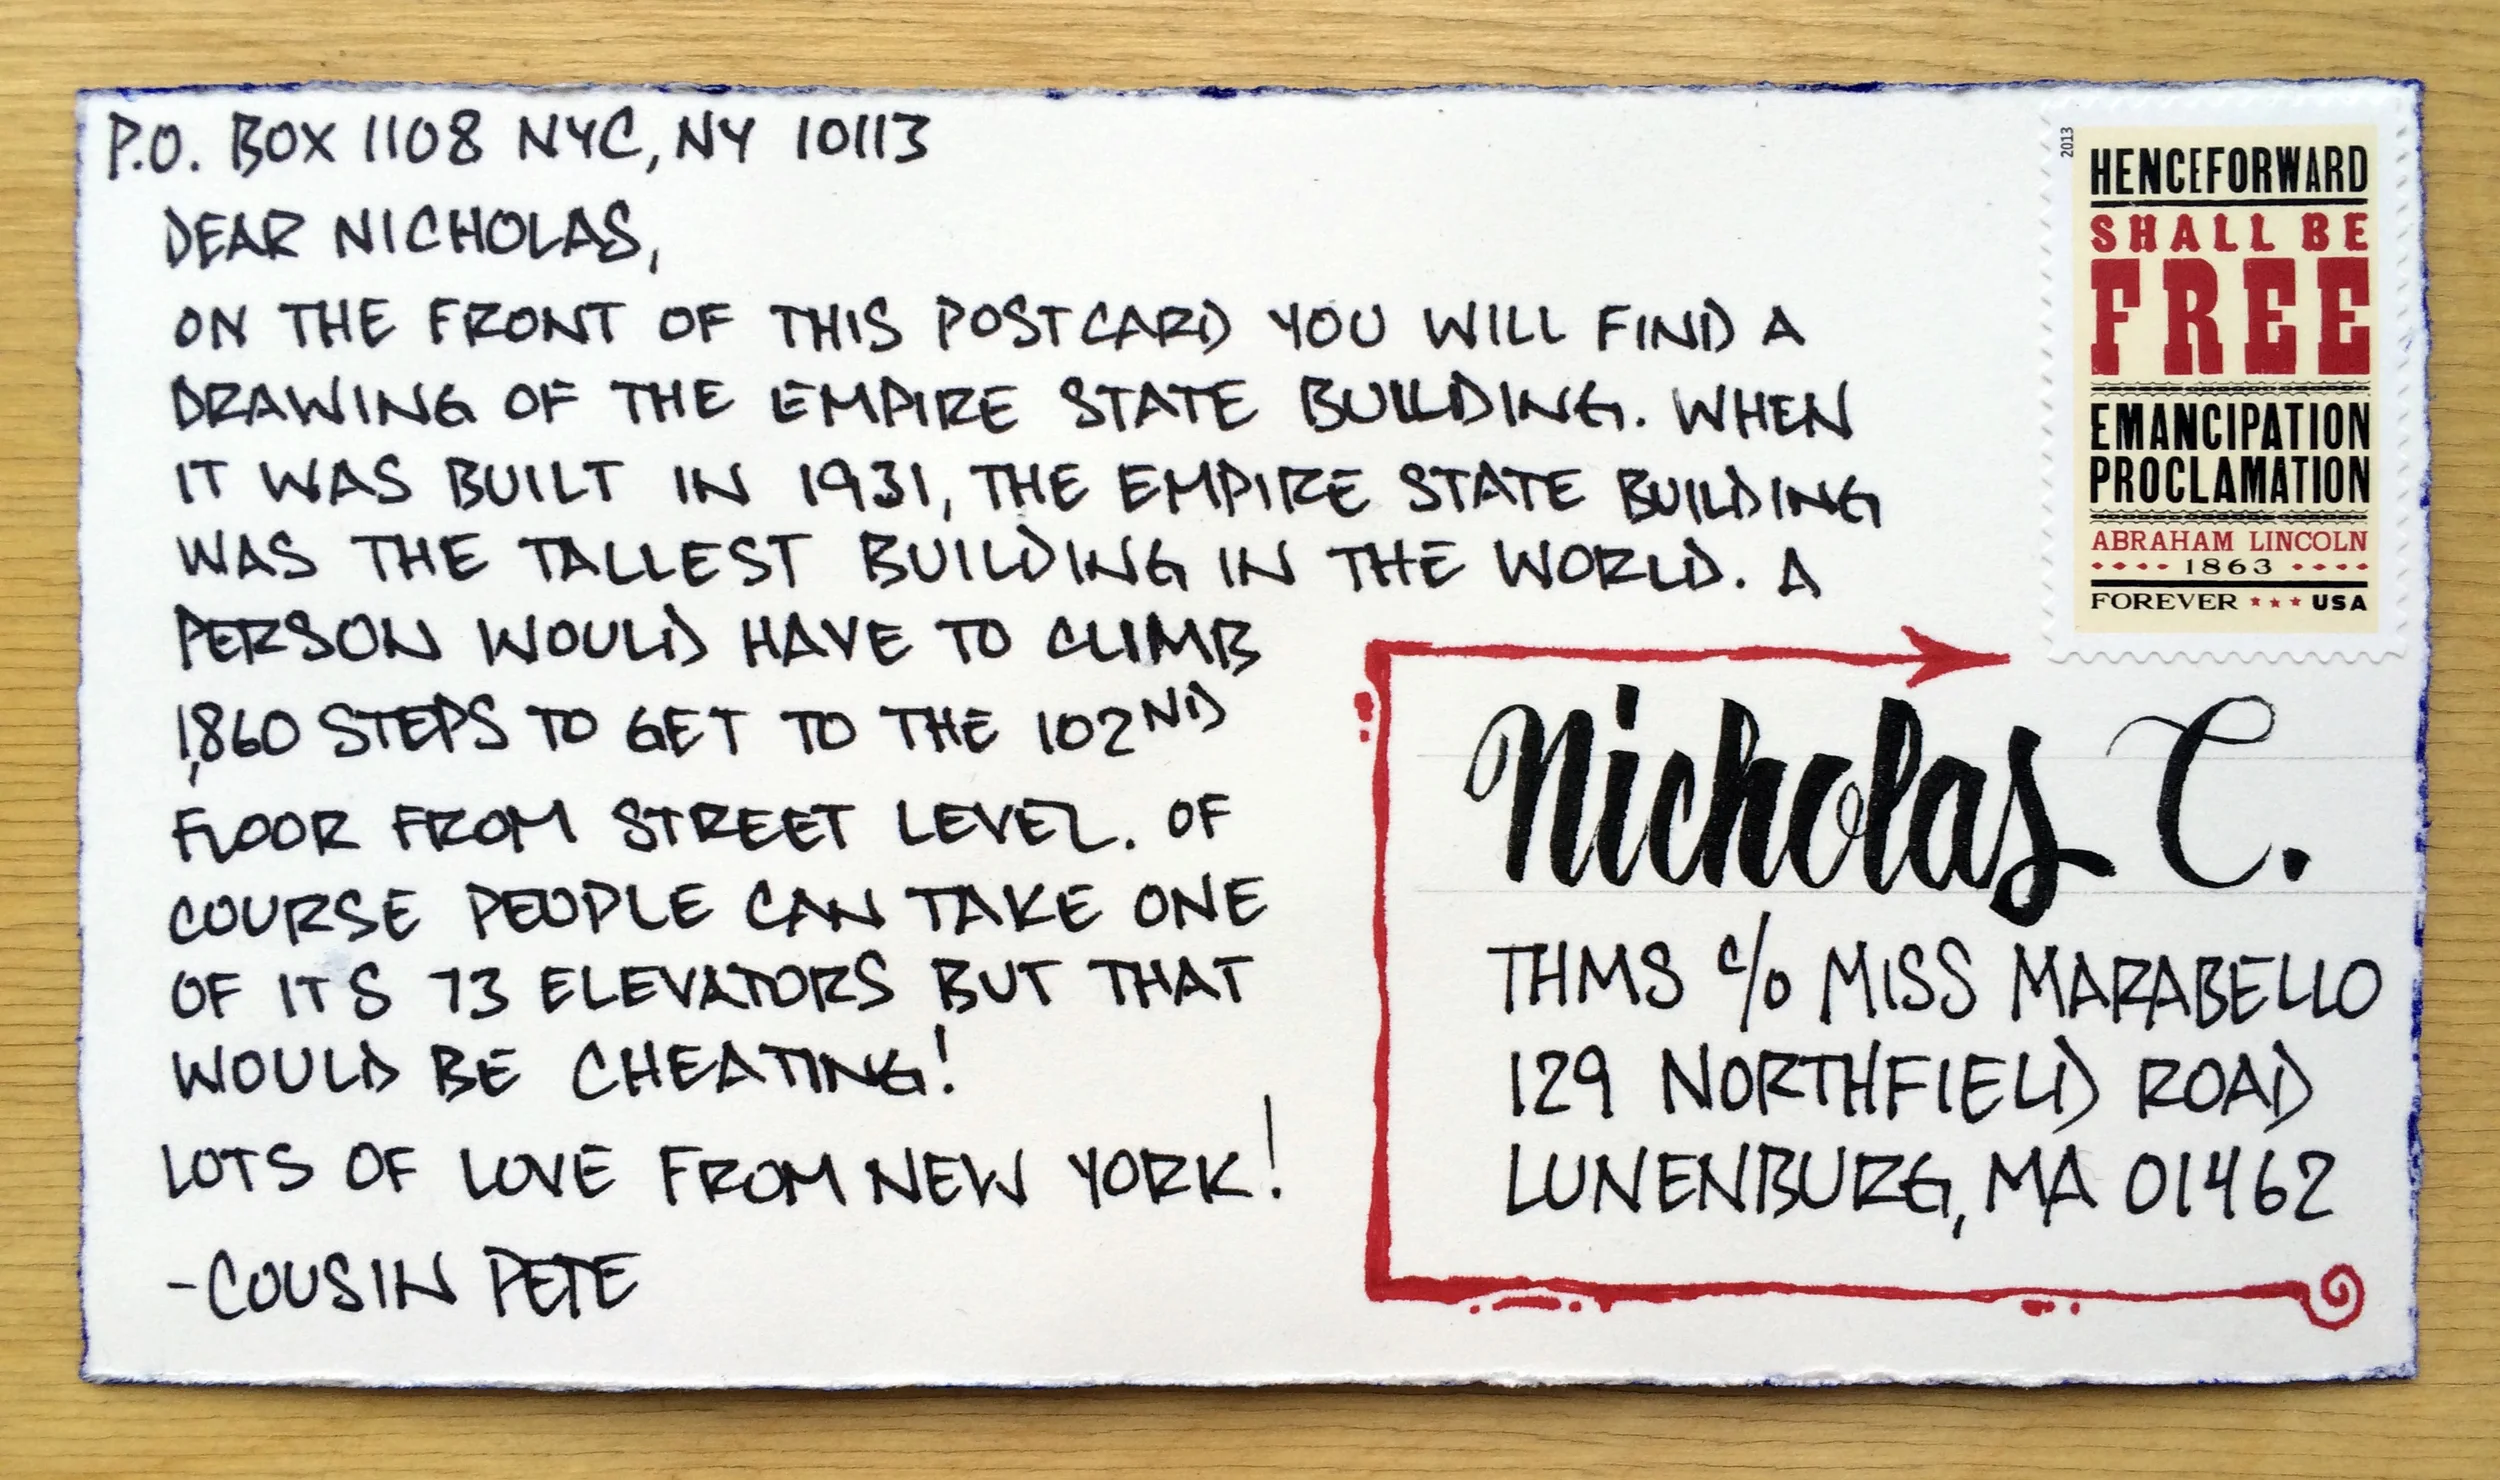 P.O. BOX 1108 NYC, NY 10113
DEAR NICHOLAS,
ON THE FRONT OF THIS POSTCARD YOU WILL FIND A
DRAWING OF THE EMPIRE STATE BUILDING. WHEN
IT WAS BUILT IN 1931, THE EMPIRE STATE BUILDING
WAS THE TALLEST BUILDING IN THE WORLD. A
PERSON WOULD HAVE TO CLIMB
1,860 STEPS TO GET TO THE 102ND
FLOOR FROM STREET LEVEL. OF
COURSE PEOPLE CAN TAKE ONE
OF IT'S 73 ELEVATORS BUT THAT
WOULD BE CHEATING!
LOTS OF LOVE FROM NEW YORK!
-COUSIN PETE
2013
HENCEFORWARD
SHALL BE
FREE
EMANCIPATION
PROCLAMATION
ABRAHAM LINCOLN
1863
FOREVER USA
Nicholas C.
THMS c/o MISS MARABELLO
129 NORTHFIELD ROAD
LUNENBURG, MA 01462